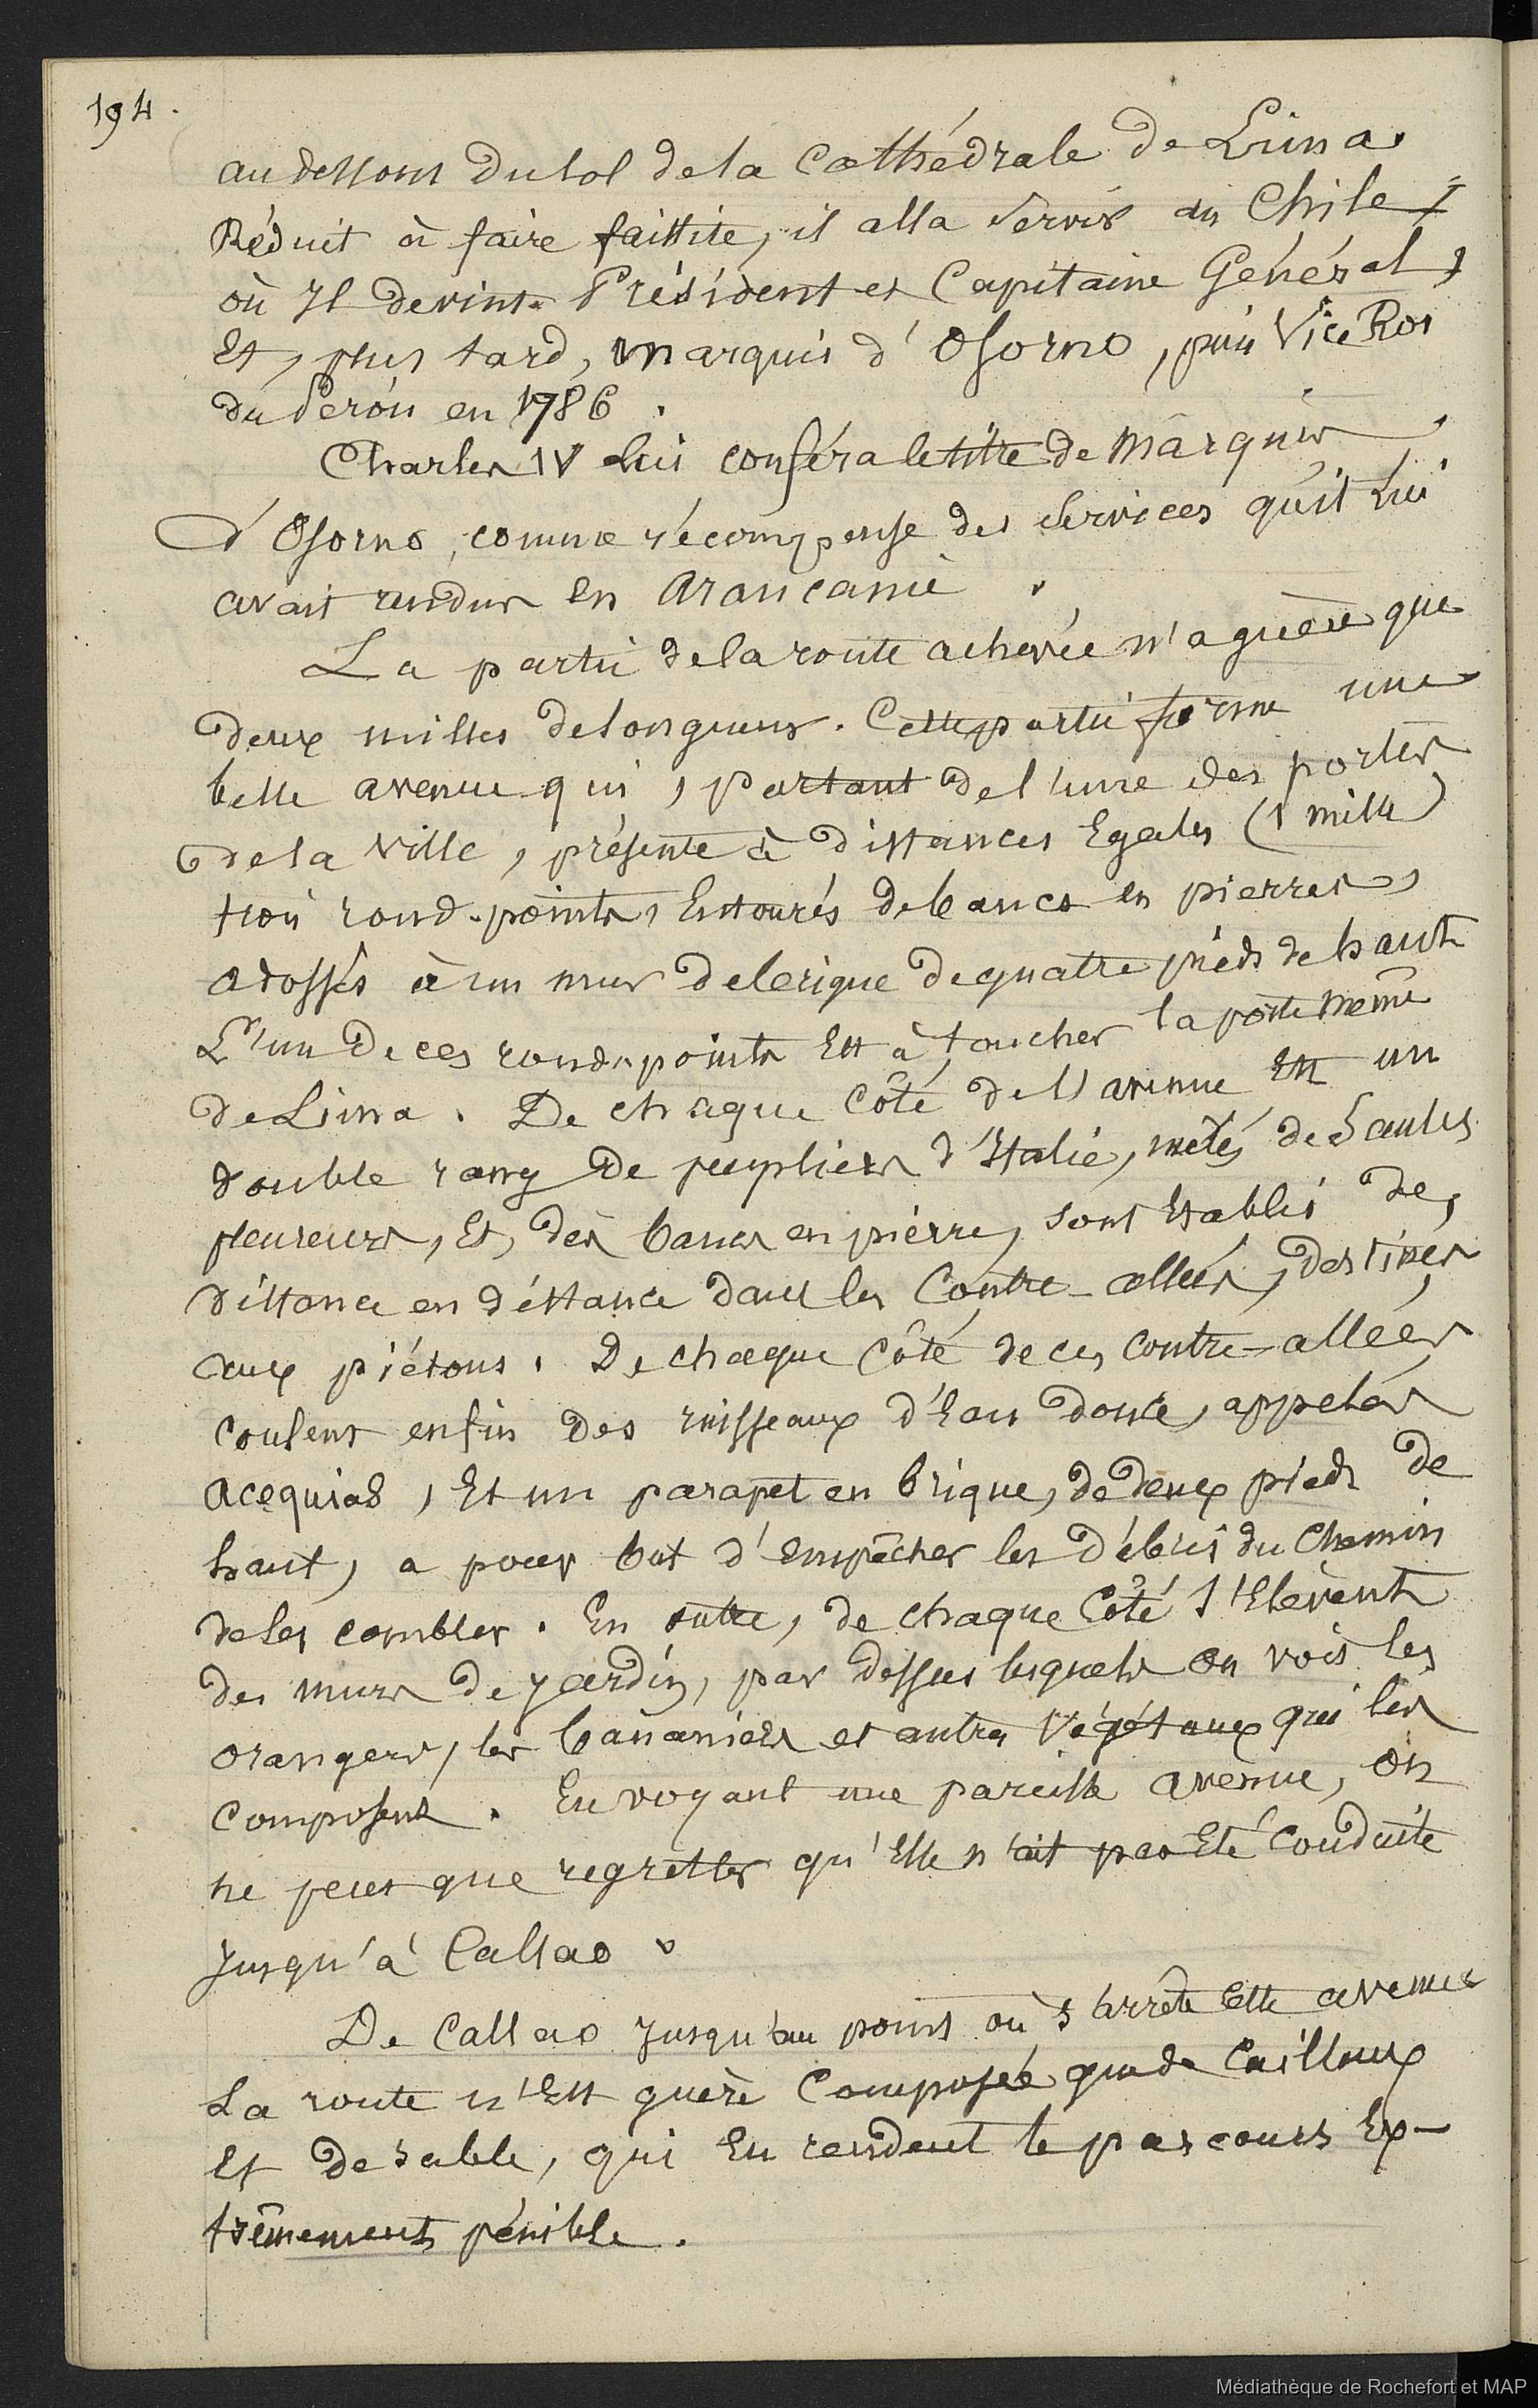 194.
au dessous du sol de la Cathédrale de Lima.
Réduit à faire faillite, il alla servir au Chile,
où Il devint Président et Capitaine Général,
Et, plus tard, marquis d'Osorno, puis Vice Roi
du Pérou en 1786.
Charles IV lui conféra le titre de Marquis
d'Osorno, comme récompense des services qu'il lui
avait rendus en Araucanie.
La partie de la route achevée n'a guère que
deux milles de longueur. Cette partie forme une
belle avenue qui, partant de l'une des portes
de la Ville, présente à distances Egales (1 mille)
trois rond-points, Entourés de bancs en pierres,
adossés à un mur de brique de quatre pieds de haut
L'un de ces rond-points Est à toucher la porte même
de Lima. De chaque Côté de l'avenue Est un
double rang de peupliers d'Italie, mêlés de Saules
pleureurs, Et, des bancs en pierre, sont Etablis de,
distance en distance dans les Contre-allées, destinées
aux piétons. De chaque Côté de ces contre-allées
coulent enfin des ruisseaux d'Eau douce, appelés
acequias, Et un parapet en brique, de deux pieds de
haut, a pour but d'empêcher les débris du Chemin
de les combler. En outre, de chaque Côté s'Elèvent
des murs de jardin, par dessus lesquels on voit les
orangers, les bananiers et autres Végétaux qui les
composent. En voyant une pareille avenue, on
ne peut que regretter qu'Elle n'ait pas Eté Conduite
jusqu'à Callao.
De Callao jusqu'au point où s'arrête Cette avenue
La route n'Est guère Composée que de Cailloux
Et de sable, qui En rendent le parcours Ex-
trêmement pénible.
Médiathèque de Rochefort et MAP